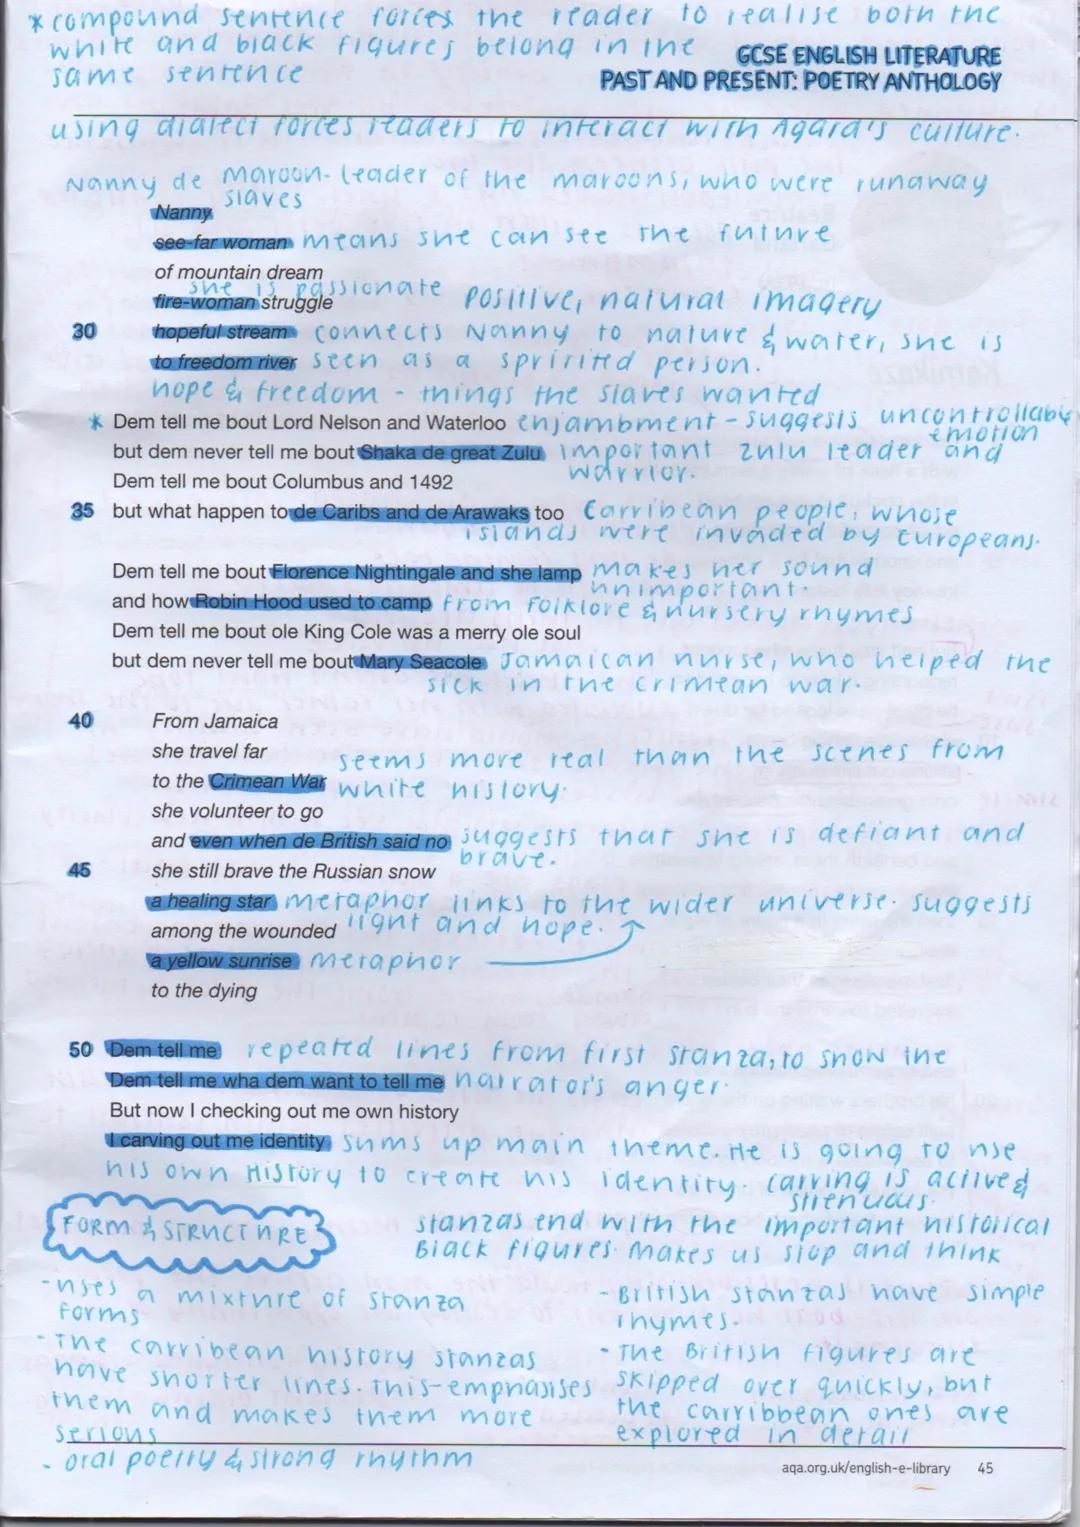 * compound sentence forces the reader to realise both the
white and black figures belong in the
same sentence
GCSE ENGLISH LITERATURE
PAST AND PRESENT: POETRY ANTHOLOGY
using dialect forces readers to interact with Agard's culture.
Nanny de maroon - leader of the maroons, who were runaway
slaves
Nanny
see-far woman means she can see the future
of mountain dream
she is passionate
fire-woman struggle positive, natural imagery
30 hopeful stream connects Nanny to nature & water, she is
to freedom river seen as a spririted person.
hope & freedom - things the slaves wanted
* Dem tell me bout Lord Nelson and Waterloo enjambment - suggests uncontrollably
emotion
but dem never tell me bout Shaka de great Zulu important zulu leader and
warrior.
Dem tell me bout Columbus and 1492
35 but what happen to de Caribs and de Arawaks too Carribean people, whose
islands were invaded by Europeans.
Dem tell me bout Florence Nightingale and she lamp makes her sound
unimportant.
and how Robin Hood used to camp from folklore & nursery rhymes
Dem tell me bout ole King Cole was a merry ole soul
but dem never tell me bout Mary Seacole Jamaican nurse, who helped the
sick in the crimean war.
40 From Jamaica
she travel far
seems more real than the scenes from
to the Crimean War white history.
she volunteer to go
and even when de British said no suggests that she is defiant and
brave.
45 she still brave the Russian snow
a healing star metaphor links to the wider universe. suggests
among the wounded light and hope.
a yellow sunrise metaphor
to the dying
50 Dem tell me repeated lines from first stanza, to show the
Dem tell me wha dem want to tell me narrator's anger.
But now I checking out me own history
I carving out me identity sums up main theme. He is going to use
his own History to create his identity. carving is active &
strenuous.
FORM & STRUCTURE
stanzas end with the important historical
Black figures. makes us stop and think
- uses a mixture of stanza
forms
- The carribean history stanzas
have shorter lines. This emphasises
them and makes them more
serious
- oral poetry & strong rhythm
- British stanzas have simple
rhymes.
- The British figures are
skipped over quickly, but
the carribbean ones are
explored in detail
aqa.org.uk/english-e-library 45